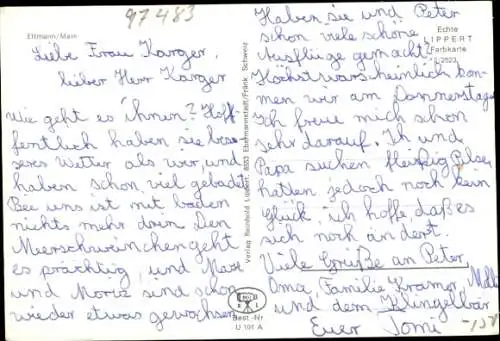 97483
Eltmann/Main
Liebe Frau Karger,
lieber Herr Karger
Wie geht es ihnen? Hof-
fentlich haben sie bes-
seres Wetter als wir, und
haben schon viel gebadet
Bei uns ist mit baden
nichts mehr drin. Den
Meerschweinchen geht
es prächtig, und Max
und Moriz sind schon
wieder etwas gewachsen
Verlag Reinhold Lippert, 8553 Ebermannstadt/Fränk. Schweiz
Best.-Nr.
U 101 A
Echte
LIPPERT
Farbkarte
Haben sie und Peter
schon viele schöne
Ausflüge gemacht?
Höchstwarscheinlich kom-
men wir am Donnerstag
Ich freue mich schon
sehr darauf. Ich und
Papa suchen fleißig Pilze,
hatten jedoch noch kein
Glück, ich hoffe, daß es
sich noch ändert.
Viele Grüße an Peter,
Oma, Familie Kramer,
und dem Klingelbär
Euer Tomi